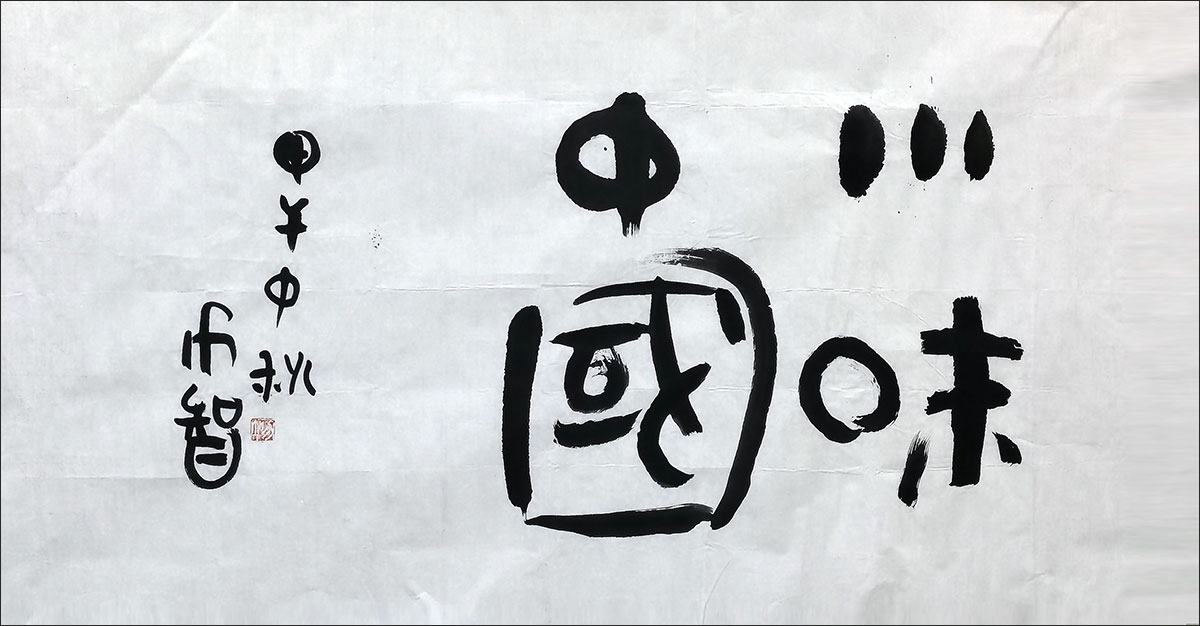 川味
中國
甲午中秋
智